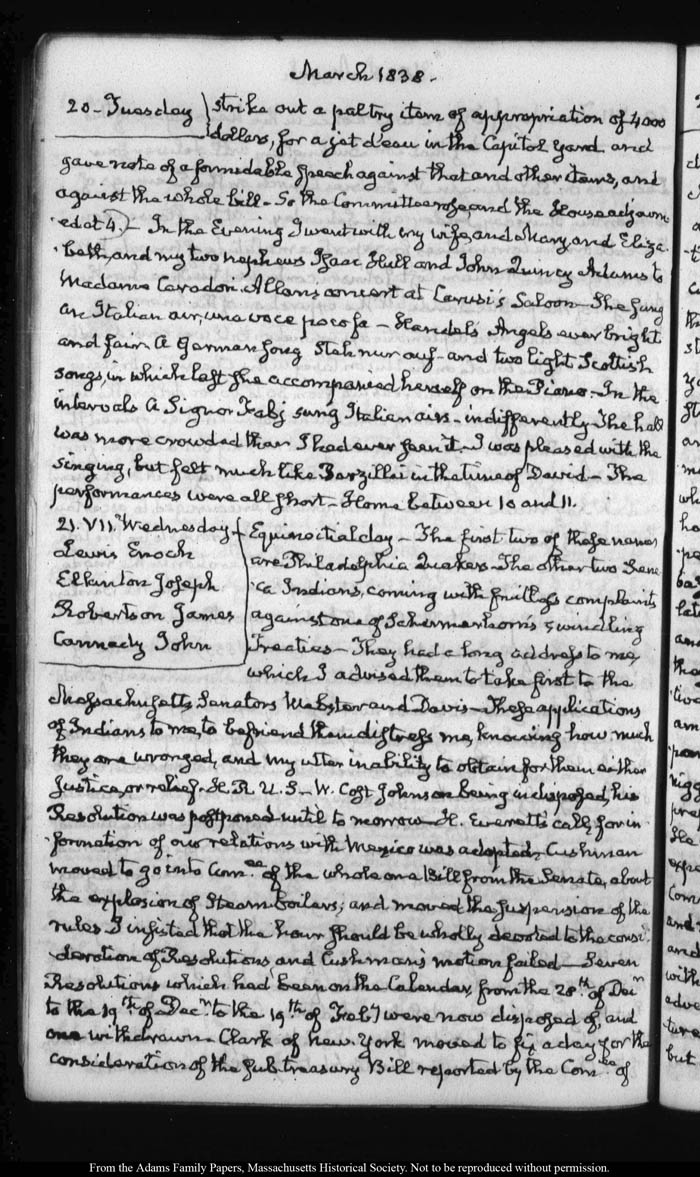 March 1838.
20. Tuesday } strike out a paltry item of appropriation of 4000
dollars, for a jet d'eau in the Capitol yard and
gave note of a formidable speech against that and other items, and
against the whole bill. So the Committee rose, and the House adjourn
-ed at 4.) - In the Evening I went with my wife, and Mary and Eliza
-beth, and my two nephews Isaac Hull and John Quincy Adams to
Madame Caradori Allan's concert at Carusi's Saloon. She sung
an Italian air, una voce poco fa - Handel's Angels ever bright
and fair. A German song Steh nur auf - and two light Scottish
songs, in which last she accompanied herself on the Piano - In the
intervals A Signor Fabj sung Italian airs - indifferently. The hall
was more crowded than I had ever seen it. I was pleased with the
singing, but felt much like Barzillai in the time of David - The
performances were all short - Home between 10 and 11.
21. VII. Wednesday
Lewis Enoch
Elkanton Joseph
Robertson James
Cannedy John
Equinoctial day - The first two of these names
are Philadelphia Quakers. The other two Sene
-ca Indians, coming with faithful complaints
against one of Schermerhorn's swindling
Treaties - They had a long address to me,
which I advised them to take first to the
Massachusetts Senators Webster and Davis - These applications
of Indians to me, to befriend them distress me, knowing how much
they are wronged, and my utter inability to obtain for them either
Justice, or relief. H.R.U.S - W. Cost Johnson being indisposed, his
Resolution was postponed until to morrow - H. Everett's call for in
-formation of our relations with Mexico was adopted, Cushman
moved to go into Com.ee of the whole on a Bill from the Senate, about
the explosion of Steam boilers; and moved the suspension of the
rules. I insisted that the hour should be wholly devoted to the consi
-deration of Resolutions and Cushman's motion failed - Seven
Resolutions which had been on the Calendar, from the 28.th of Dec.n
to the 19.th of Dec.n to the 19th of Feb.y were now disposed of, and
one withdrawn - Clark of New York moved to fix a day for the
consideration of the Sub treasury Bill reported by the Com.ee of
From the Adams Family Papers, Massachusetts Historical Society. Not to be reproduced without permission.